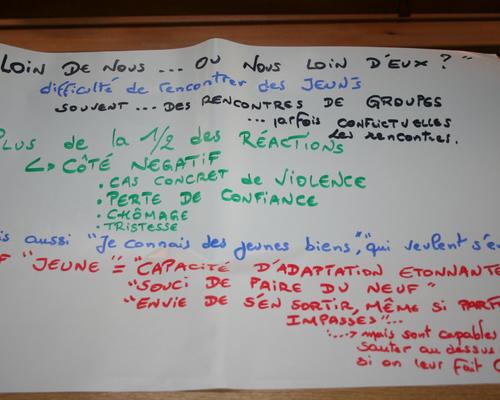 LOIN DE NOUS ... OU NOUS LOIN D'EUX ? "
difficulté de rencontrer des JEUNS
SOUVENT ... DES RENCONTRES DE GROUPES
... parfois CONFLICTUELLES
les rencontres.
PLUS de la 1/2 des RÉACTIONS
↳ CÔTÉ NEGATIF
• CAS CONCRET de VIOLENCE
• PERTE DE CONFIANCE
• CHÔMAGE
• TRISTESSE
is aussi "Je connais des jeunes biens", "qui veulent s'e
F "JEUNE" = "CAPACITÉ D'ADAPTATION ETONNANTE
"SOUCI DE FAIRE DU NEUF"
"ENVIE DE S'EN SORTIR, MÊME SI PARF
IMPASSES"...
...→ mais sont capables
sauter au dessus
si on leur fait C